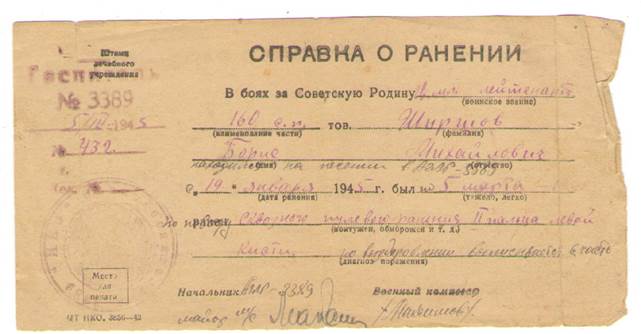 Штамп
лечебного
учреждения
Госпиталь
№ 3389
5/III-1945
№ 432
СПРАВКА О РАНЕНИИ
В боях за Советскую Родину мл. лейтенант
(воинское звание)
160 с.п. тов. Ширшов
(наименование части) (фамилия)
Борис Михайлович
(имя) (отчество)
находился на лечении в 3389
с „19“ января 1945 г. был по 5 марта
(дата ранения) (тяжело, легко)
по поводу сквозного пулевого ранения II пальца левой
(контужен, обморожен и т. д.)
кисти по выздоровлении выписывается в часть
(диагноз поражения)
Место
для
печати
Начальник 3389 Военный комиссар
майор м/с
УТ НКО. 3856—43